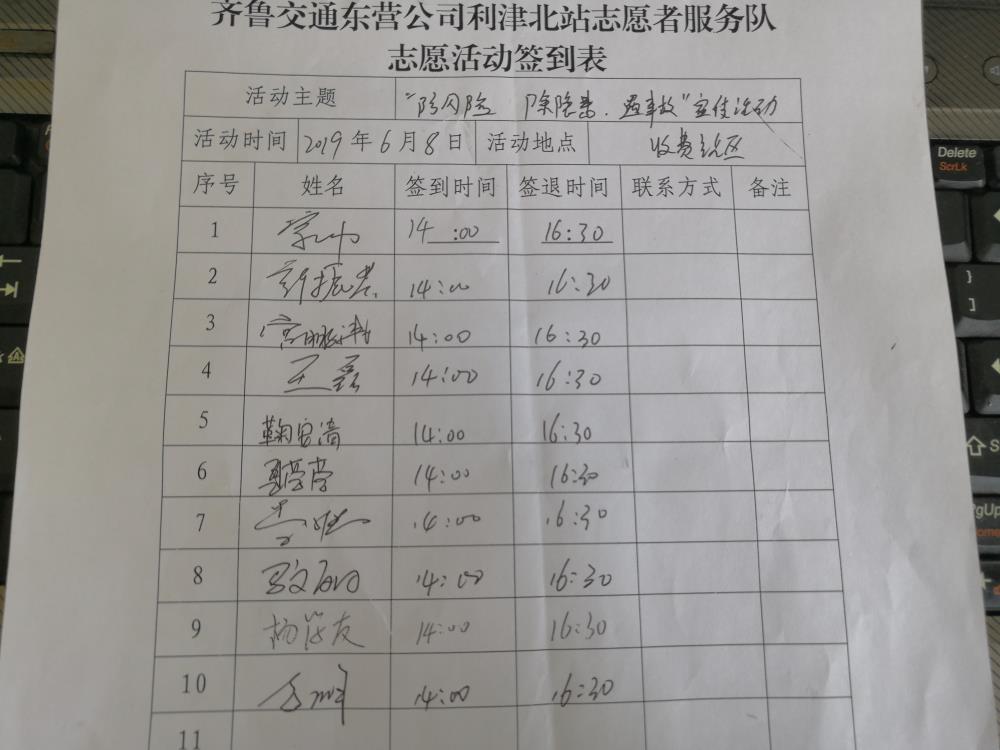 齐鲁交通东营公司利津北站志愿者服务队
志愿活动签到表
活动主题 “防风险 除隐患、遏事故”宣传活动
活动时间 2019年6月8日 活动地点 收费站区
序号 姓名 签到时间 签退时间 联系方式 备注
1 14:00 16:30
2 14:00 16:30
3 14:00 16:30
4 王磊 14:00 16:30
5 14:00 16:30
6 14:00 16:30
7 14:00 16:30
8 14:00 16:30
9 杨 友 14:00 16:30
10 14:00 16:30
11
Delete
ScrLk
PgUp